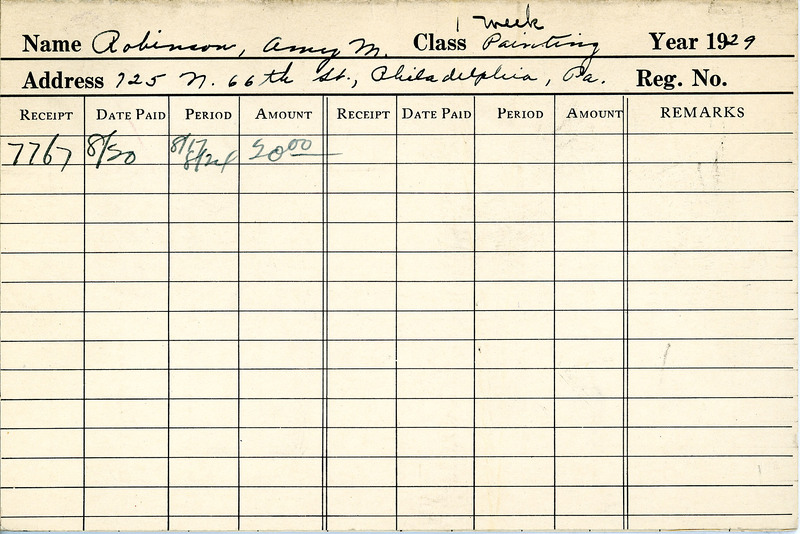 1 week
Name Robinson, Amy M. Class Painting Year 1929
Address 725 N. 66th St., Philadelphia, Pa. Reg. No.
RECEIPT DATE PAID PERIOD AMOUNT RECEIPT DATE PAID PERIOD AMOUNT REMARKS
7767 8/20 8/17 8/24 20.00